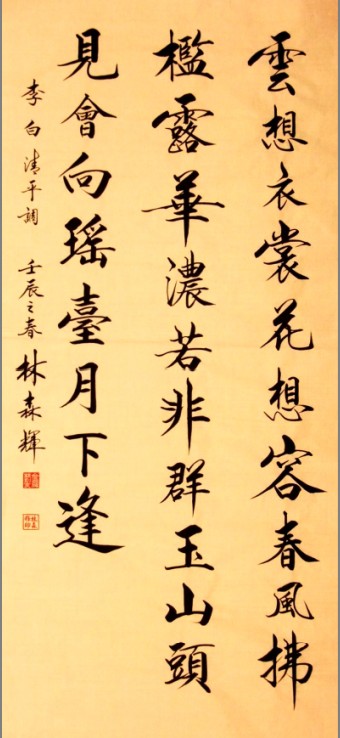 雲想衣裳花想容春風拂
檻露華濃若非群玉山頭
見會向瑶臺月下逢
李白清平調 壬辰之春 林森輝